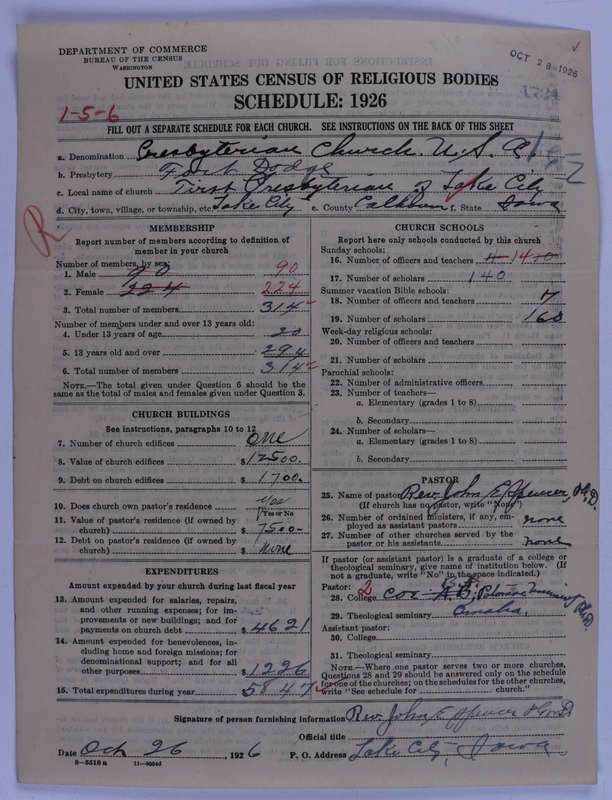 DEPARTMENT OF COMMERCE
BUREAU OF THE CENSUS
WASHINGTON
OCT 28 1926
UNITED STATES CENSUS OF RELIGIOUS BODIES
SCHEDULE: 1926
1-5-6
FILL OUT A SEPARATE SCHEDULE FOR EACH CHURCH. SEE INSTRUCTIONS ON THE BACK OF THIS SHEET
a. Denomination Presbyterian Church U. S. A.
b. Presbytery Fort Dodge
c. Local name of church First Presbyterian of Lake City
d. City, town, village, or township, etc. Lake City e. County Calhoun f. State Iowa
R
MEMBERSHIP
Report number of members according to definition of member in your church
Number of members, by sex:
1. Male 90 90
2. Female 224 224
3. Total number of members 314
Number of members under and over 13 years old:
4. Under 13 years of age 20
5. 13 years old and over 294
6. Total number of members 314
NOTE.—The total given under Question 6 should be the same as the total of males and females given under Question 3.
CHURCH BUILDINGS
See instructions, paragraphs 10 to 12
7. Number of church edifices one
8. Value of church edifices $12500.
9. Debt on church edifices $1700.
10. Does church own pastor's residence yes
Yes or No
11. Value of pastor's residence (if owned by
church) $7500-
12. Debt on pastor's residence (if owned by
church) $ none
EXPENDITURES
Amount expended by your church during last fiscal year
13. Amount expended for salaries, repairs,
and other running expenses; for im-
provements or new buildings; and for
payments on church debt $4621
14. Amount expended for benevolences, in-
cluding home and foreign missions; for
denominational support; and for all
other purposes $1226
15. Total expenditures during year 5847
CHURCH SCHOOLS
Report here only schools conducted by this church
Sunday schools:
16. Number of officers and teachers 14
17. Number of scholars 140
Summer vacation Bible schools:
18. Number of officers and teachers 7
19. Number of scholars 160
Week-day religious schools:
20. Number of officers and teachers
21. Number of scholars
Parochial schools:
22. Number of administrative officers
23. Number of teachers—
a. Elementary (grades 1 to 8)
b. Secondary
24. Number of scholars—
a. Elementary (grades 1 to 8)
b. Secondary
PASTOR
25. Name of pastor Rev. John E. Spencer, Ph.D.
(If church has no pastor, write "None")
26. Number of ordained ministers, if any, em-
ployed as assistant pastors none
27. Number of other churches served by the
pastor or his assistants none
If pastor (or assistant pastor) is a graduate of a college or theological seminary, give name of institution below. (If not a graduate, write "No" in the space indicated.)
Pastor: 2
28. College Coe A.B.
29. Theological seminary Omaha.
Assistant pastor:
30. College
31. Theological seminary
NOTE.—Where one pastor serves two or more churches, Questions 28 and 29 should be answered only on the schedule for one of the churches; on the schedules for the other churches, write "See schedule for church."
Signature of person furnishing information Rev. John E. Spencer
Official title
Date Oct 26, 1926 P. O. Address Lake City, Iowa
8—5518 a